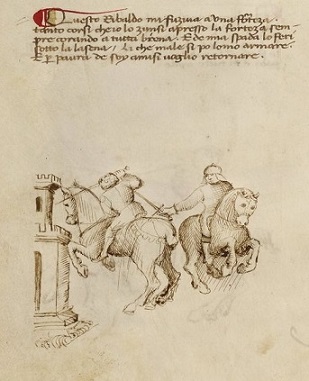 Questo Ribaldo mi fuziva a una forteza.
tanto corsi che io lo zunsi apresso la forteza sem-
pre corando a tutta brena. E de mia spada lo feri
sotto la lasena, li che male si po lomo armare.
E per paura de soy amisi voglio retornare.